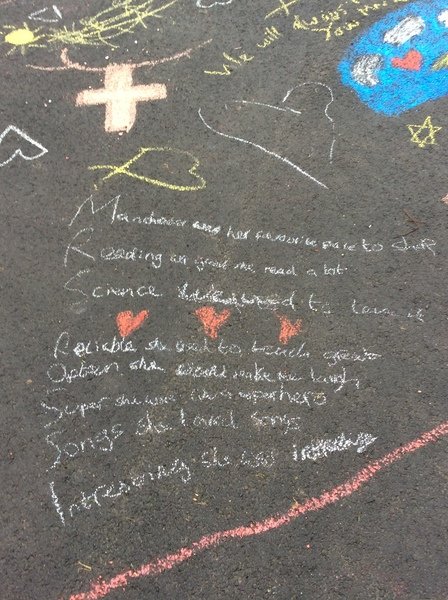 We will always
you
Manchester was her favourite place to shop
Reading on good me read a bit
Science used to love it
Reliable she used to teach great
Often she would make me laugh
Super she was superhero
Songs she loved songs
Intresering she was